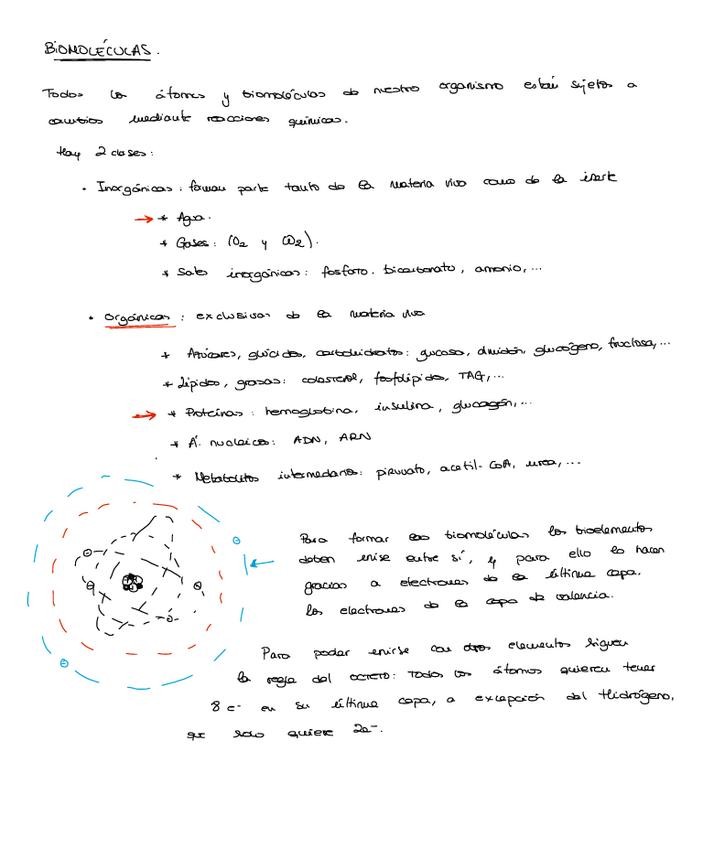 BIOMOLÉCULAS.
Todos los átomos y biomoléculas de nuestro organismo están sujetos a
cambios mediante reacciones químicas.
Hay 2 clases:
• Inorgánicas: forman parte tanto de la materia viva como de la inerte
→ * Agua.
* Gases: (O2 y CO2).
* Sales inorgánicas: fosfato. bicarbonato, amonio,...
• Orgánicas: exclusivas de la materia viva
* Azúcares, glúcidos, carbohidratos: glucosa, almidón, glucógeno, fructosa,...
* Lípidos, grasas: colesterol, fosfolípidos, TAG,...
→ * Proteínas: hemoglobina, insulina, glucagón,...
* Á. nucleicos: ADN, ARN
* Metabolitos intermediarios: piruvato, acetil-CoA, urea,...
Para formar las biomoléculas los bioelementos
deben unirse entre sí, y para ello lo hacen
gracias a electrones de la última capa.
los electrones de la capa de valencia.
Para poder unirse con otros elementos siguen
la regla del OCTETO: Todos los átomos quieren tener
8 e- en su última capa, a excepción del Hidrógeno,
que solo quiere 2e-.